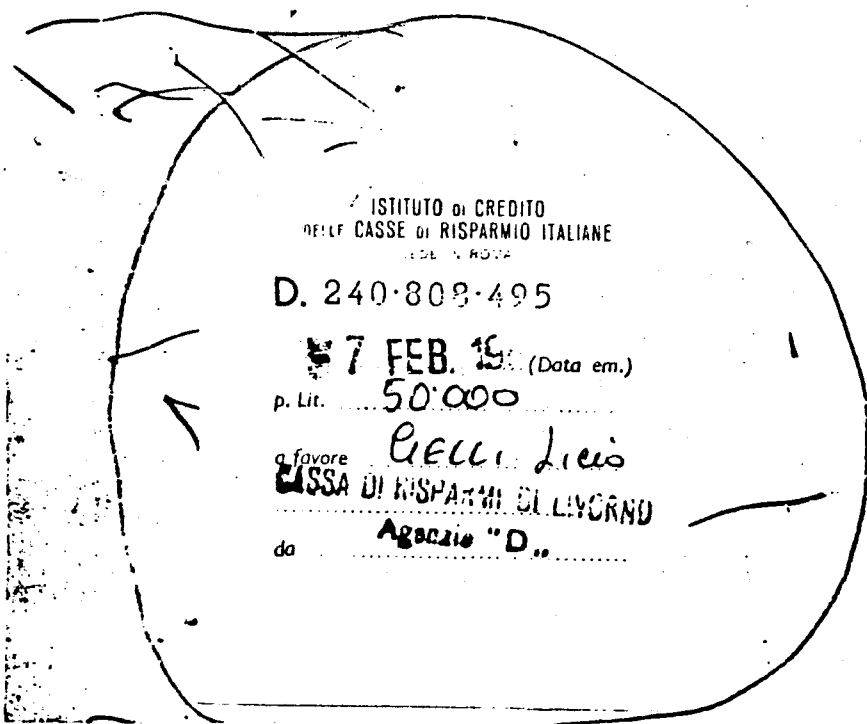 ISTITUTO DI CREDITO
DELLE CASSE DI RISPARMIO ITALIANE
SEDE IN ROMA
D. 240·808·495
7 FEB. 19 (Data em.)
p. Lit. 50·000
a favore GELLI Licio
CASSA DI RISPARMI DI LIVORNO
da Agenzia "D„